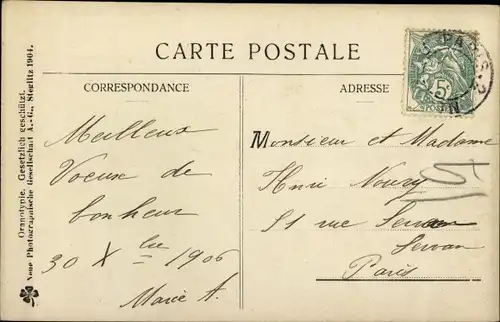 CARTE POSTALE
CORRESPONDANCE
ADRESSE
Meilleurs
Voeux de
bonheur
30 Xbre 1906
Marie A.
Monsieur et Madame
Henri Noury
51 rue Servan
Servan
Paris
Oranotypie. Gesetzlich geschützt.
Neue Photographische Gesellschaft A.-G., Steglitz 1904.
PARIS
5c
POSTES